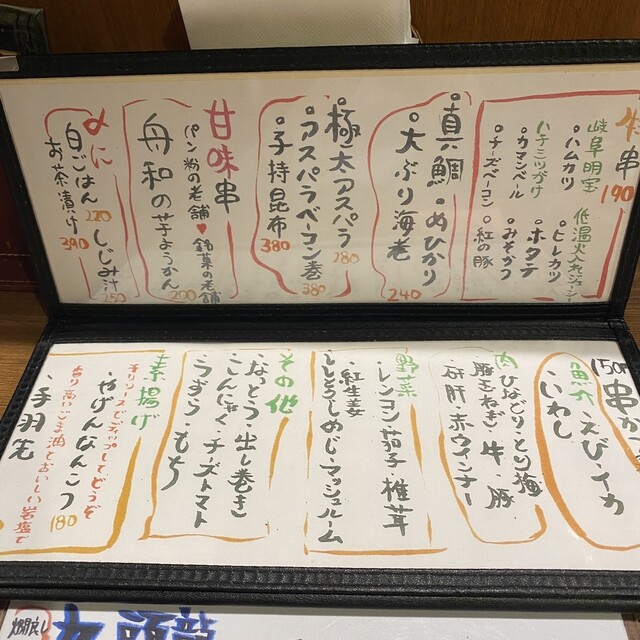 牛串
190
岐阜明宝
・ハムカツ
ハチミツがけ
・カマンベール
・チーズベーコン
・ヒレカツ
・ホタテ
・みそかつ
・紅の豚
・真鯛・めひかり
・大ぶり海老
240
・極太アスパラ
280
・アスパラベーコン巻
380
・子持昆布
380
甘味串
パン粉の老舗♥銘菓の老舗
舟和の芋ようかん
200
〆に
白ごはん
220
しじみ汁
250
お茶漬け
390
150円
串か
魚介
・えび・イカ
・いわし
肉
ひなどり・とり梅
・豚玉ねぎ・牛・豚
・砂肝・赤ウインナー
野菜
・レンコン・茄子・椎茸
・紅生姜
・ししとう・しめじ・マッシュルーム
その他
・なっとう・出し巻き
・こんにゃく・チーズトマト
・うずら・もち
素揚げ
チリソースでディップしてどうぞ
・やげんなんこつ
180
香り高いごま油とおいしい岩塩で
・手羽先
九頭龍